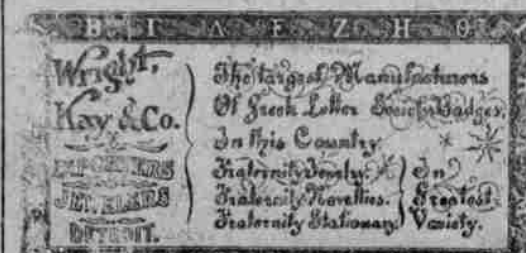 Β Γ Δ Ε Ζ Η Θ
Wright,
Kay & Co.
IMPORTERS
JEWELERS
DETROIT.
The largest Manufacturers
Of Greek Letter Society Badges,
In this Country.
Fraternity Jewelry.
Fraternity Novelties.
Fraternity Stationary.
In
Greatest
Variety.